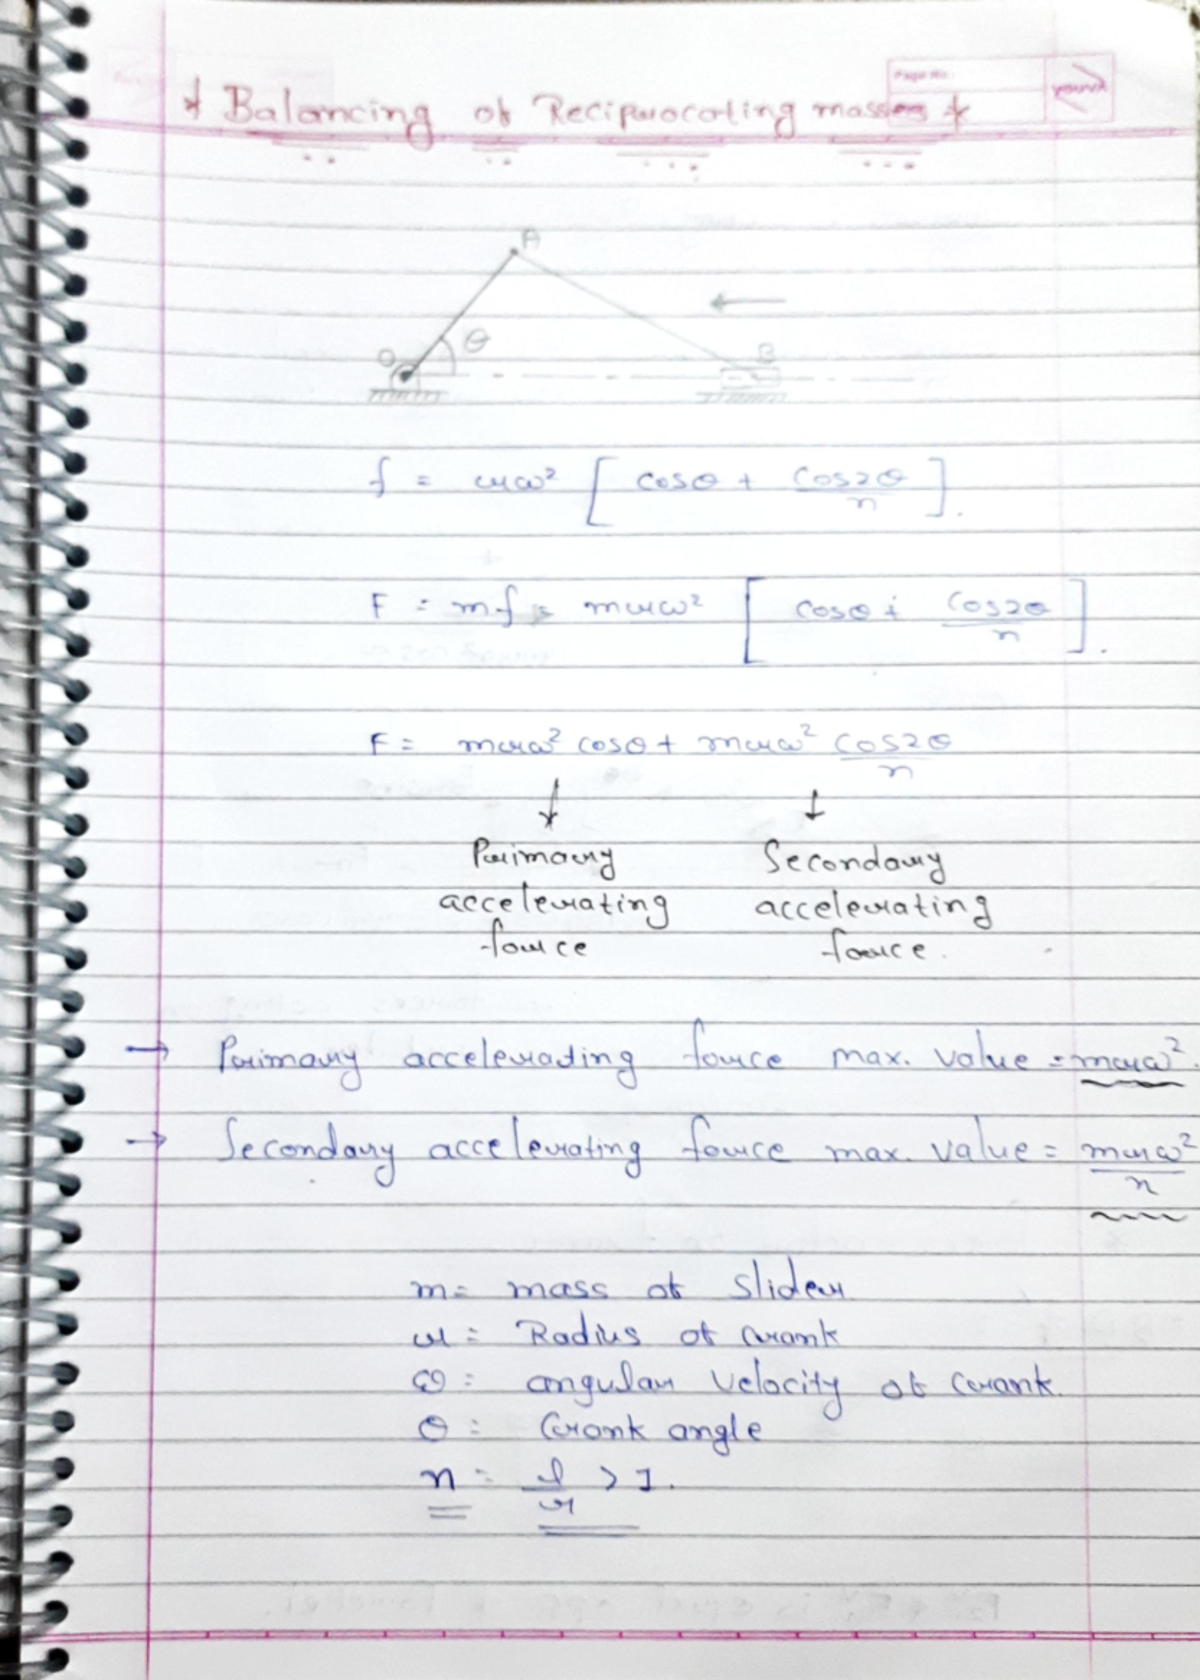 * Balancing of Reciprocating masses *
Page No.
YOUVA
A
O
θ
B
f = rω² [ cosθ + cos2θ/n ].
F = mf = mrω² [ cosθ + cos2θ/n ].
F = mrω² cosθ + mrω² cos2θ/n
↓ ↓
Primary Secondary
accelerating accelerating
force force.
→ Primary accelerating force max. value = mrω².
→ Secondary accelerating force max. value = mrω²/n
m = mass of slider
r = Radius of crank
ω = angular velocity of crank.
θ = Crank angle
n = l/r > 1.